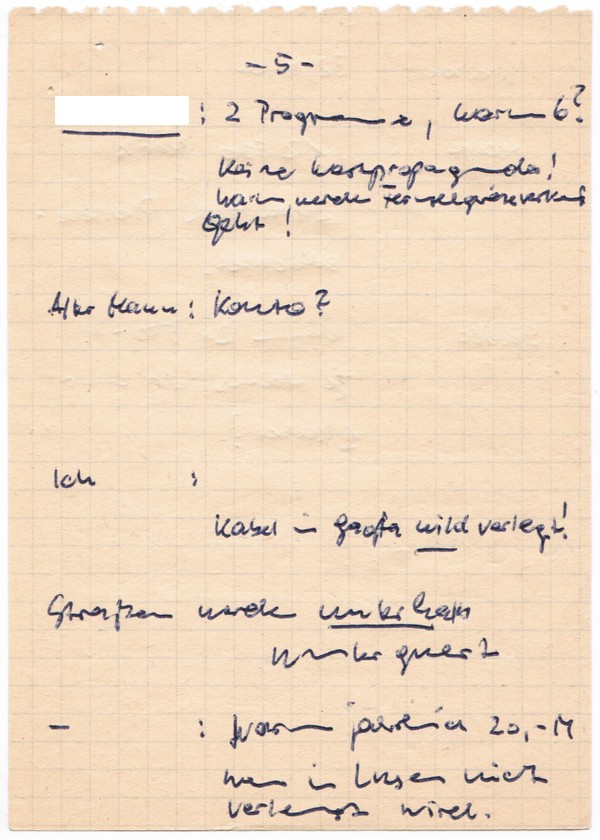 - 5 -
: 2 Programme, warum 6?
Keine Kaufpropaganda!
wann werden Fernsehgeräte verkauft
Alter Mann: Konto?
Ich :
Kabel in wild verlegt!
Straßen werden
unterquert
- : Warum jährlich 20,-M
wenn in nicht
verlangt wird.